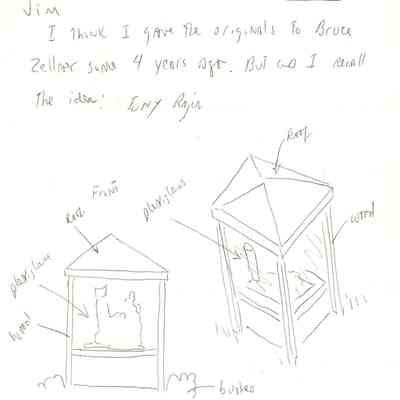 Jim
I think I gave the originals to Bruce
Zellner some 4 years ago. But as I recall
the idea: Tony
Roof
Front
Roof
plexiglass
wood
plexiglass
wood
bushes